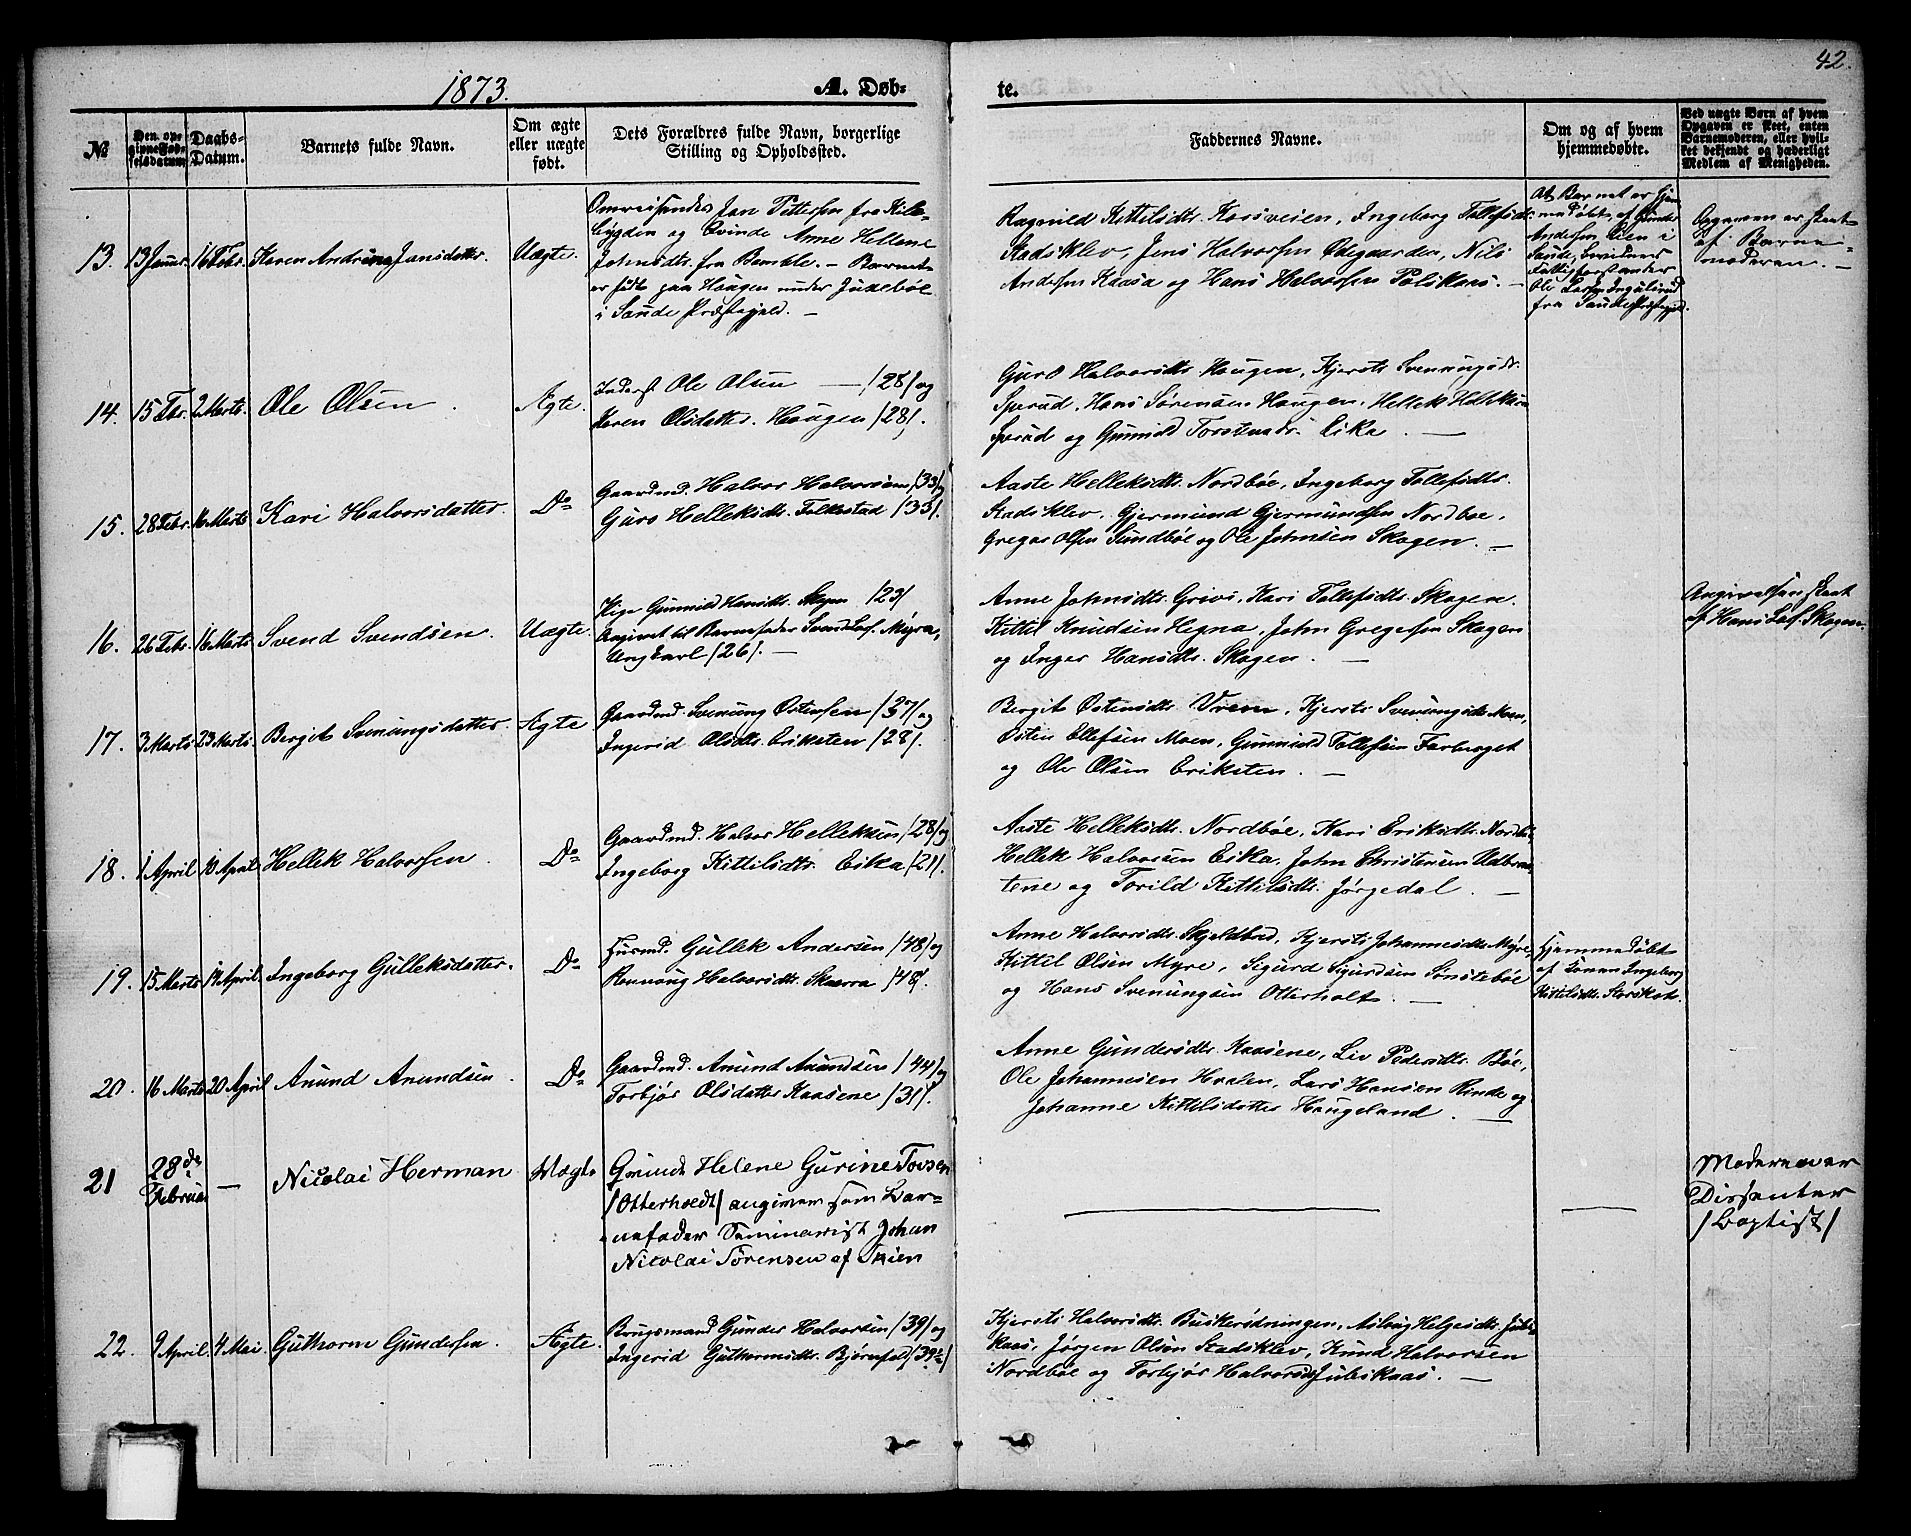 42.
1873.
A. Døb-
te.
№
Den opgivne Fødselsdatum
Daabs-Datum.
Barnets fulde Navn.
Om ægte eller uægte født.
Dets Forældres fulde Navn, borgerlige Stilling og Opholdssted.
Faddernes Navne.
Om og af hvem hjemmedøbte.
Ved uægte Børn af hvem Opgaven er skeet, enten Barnemoderen, eller hvilket bekjendt og hæderligt Medlem af Menigheden.
13. 13 Januar 16 Febr. Karen Andrine Jansdatter. Uægte.
Omreisende Jan Pettersen fra Kile-
bygden og Qvinde Anne Hellene
Johnsdtr. fra Bamble. – Barnet
er født paa Haugen under Juveböe
i Saude Præstegjeld. –
Ragnild Kittilsdtr. Kaasveien, Ingeborg Tollefsdtr.
Stadsklev, Jens Halvorsen Ødegaarden, Nils
Andersen Kaasa og Hans Halvorsen Poliskaas. –
At Barnet er hjem-
medøbt, af Gunder
Andersen Lien i
Saude, bevidner
Fattigforstander
Ole Larsen
fra Saude Præstegjeld.
Opgaven er skeet
af Barne-
moderen. –
14. 15 Febr. 2 Marts. Ole Olsen. Ægte.
Inderst Ole Olsen — /28/ og
Karen Olsdatter. Haugen /28/.
Guro Halvorsdtr. Haugen, Kjersti Svenungsdtr.
Sperud, Hans Sørensen Haugen, Hellek
Sperud og Gunnild Torstensdtr. Eika. —
15. 28 Febr. 16 Marts Kari Halvorsdatter. Do
Gaardmd. Halvor Halvorsen /33/ og
Guro Helleksdtr. Folkestad /33/.
Aaste Helleksdtr. Nordbøe, Ingeborg Tollefsdtr.
Stadsklev, Gjermund Gjermundsen Nordbøe,
Gregar Olsen Sundbøe og Ole Johnsen Skogen. —
16. 26 Febr. 16 Marts Svend Svendsen. Uægte.
Pige Gunnild Hansdtr. Skogen /23/
Angivet til Barnefader Svend Myra,
Ungkarl /26/. —
Anne Johnsdtr. Grivi, Kari Tollefsdtr. Skogen.
Kittil Knudsen Hegna, John Gregersen Skogen
og Inger Hansdtr. Skogen. —
Angivelsen skeet
af Hans Skogen.
17. 3 Marts 23 Marts. Bergit Svenungsdatter. Ægte
Gaardmd. Svenung Østensen /37/ og
Ingerid Olsdtr. Eriksten /28/.
Bergit Østensdtr. Vreim, Kjersti Svenungsdtr. Moen,
Østen Ellefsen Moen, Gunnild Tollefsen Farberget
og Ole Olsen Eriksten. —
18. 1 April 10 April Hellek Halvorsen. Do
Gaardmd. Halvor Helleksen /28/ og
Ingeborg Kittilsdtr. Eika /21/.
Aaste Helleksdtr. Nordbøe, Kari Eriksdtr. Nordbøe,
Hellek Halvorsen Eika, John Christensen
tene og Torild Kittilsdtr. Jørgedal. —
19. 15 Marts 14 April. Ingeborg Gulleksdatter. Do
Husmd. Gullek Andersen /48/ og
Rønnoug Halvorsdtr. Skaarra /48/.
Anne Halvorsdtr. Skjeldbred, Kjersti Johannesdtr. Myre,
Kittil Olsen Myre, Sigurd Sigurdsen Sønstebøe
og Hans Svenungsen Otterholt. —
Hjemmedøbt
af Konen Ingeborg
Kittilsdtr. Storskot.
20. 16 Marts 20 April Anund Anundsen. Do
Gaardmd. Anund Anundsen /44/ og
Torbjør Olsdatter Kaasene /31/.
Anne Gundersdtr. Kaasene, Liv Pedersdtr. Bøe,
Ole Johannesen Hvalen, Lars Hansen Rinde og
Johanne Kittilsdatter Haugeland. —
21 28de Februar — Nicolai Herman Uægte
Qvinde Helene Gurine Tovsen
/Otterholdt/ angiver som Bar-
nefader Seminarist Johan
Nicolai Sørensen af Skien
Moderen er
Dissenter
/Baptist/
22. 9 April. 4 Mai. Guthorm Gundersen. Ægte.
Brugsmand Gunder Halvorsen /39/ og
Ingerid Guthormsdtr. Bjørnfald /39½/
Kjersti Halvorsdtr. Buskerødningen, Aslaug Helgesdtr. Jubs-
kaas, Jørgen Olsen Stadsklev, Knud Halvorsen
Nordbøe og Torbjør Halvorsdtr. Jubskaas. —